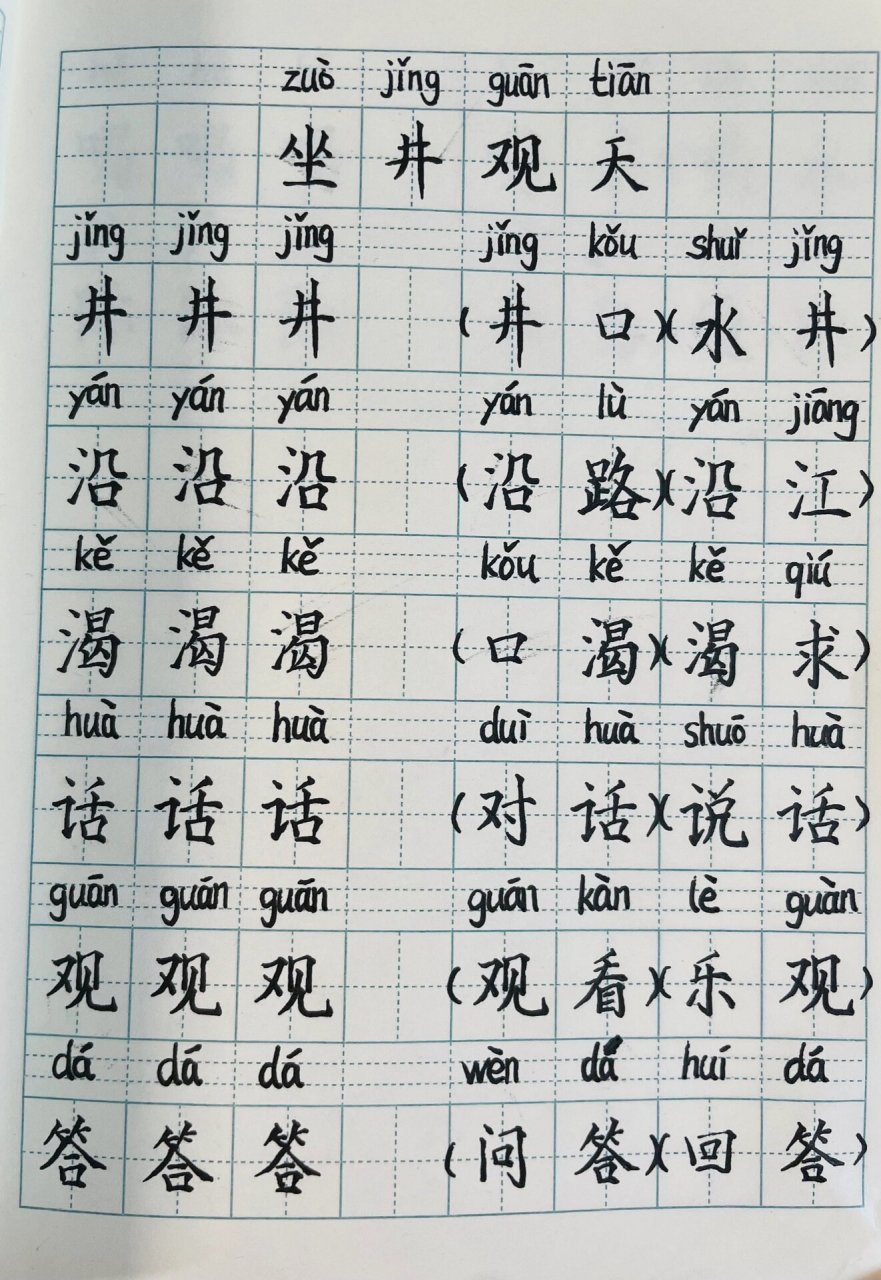 zuò jǐng guān tiān
坐井观天
jǐng jǐng jǐng jǐng kǒu shuǐ jǐng
井井井(井口)(水井)
yán yán yán yán lù yán jiāng
沿沿沿(沿路)(沿江)
kě kě kě kǒu kě kě qiú
渴渴渴(口渴)(渴求)
huà huà huà duì huà shuō huà
话话话(对话)(说话)
guān guān guān guān kàn lè guàn
观观观(观看)(乐观)
dá dá dá wèn dá huí dá
答答答(问答)(回答)